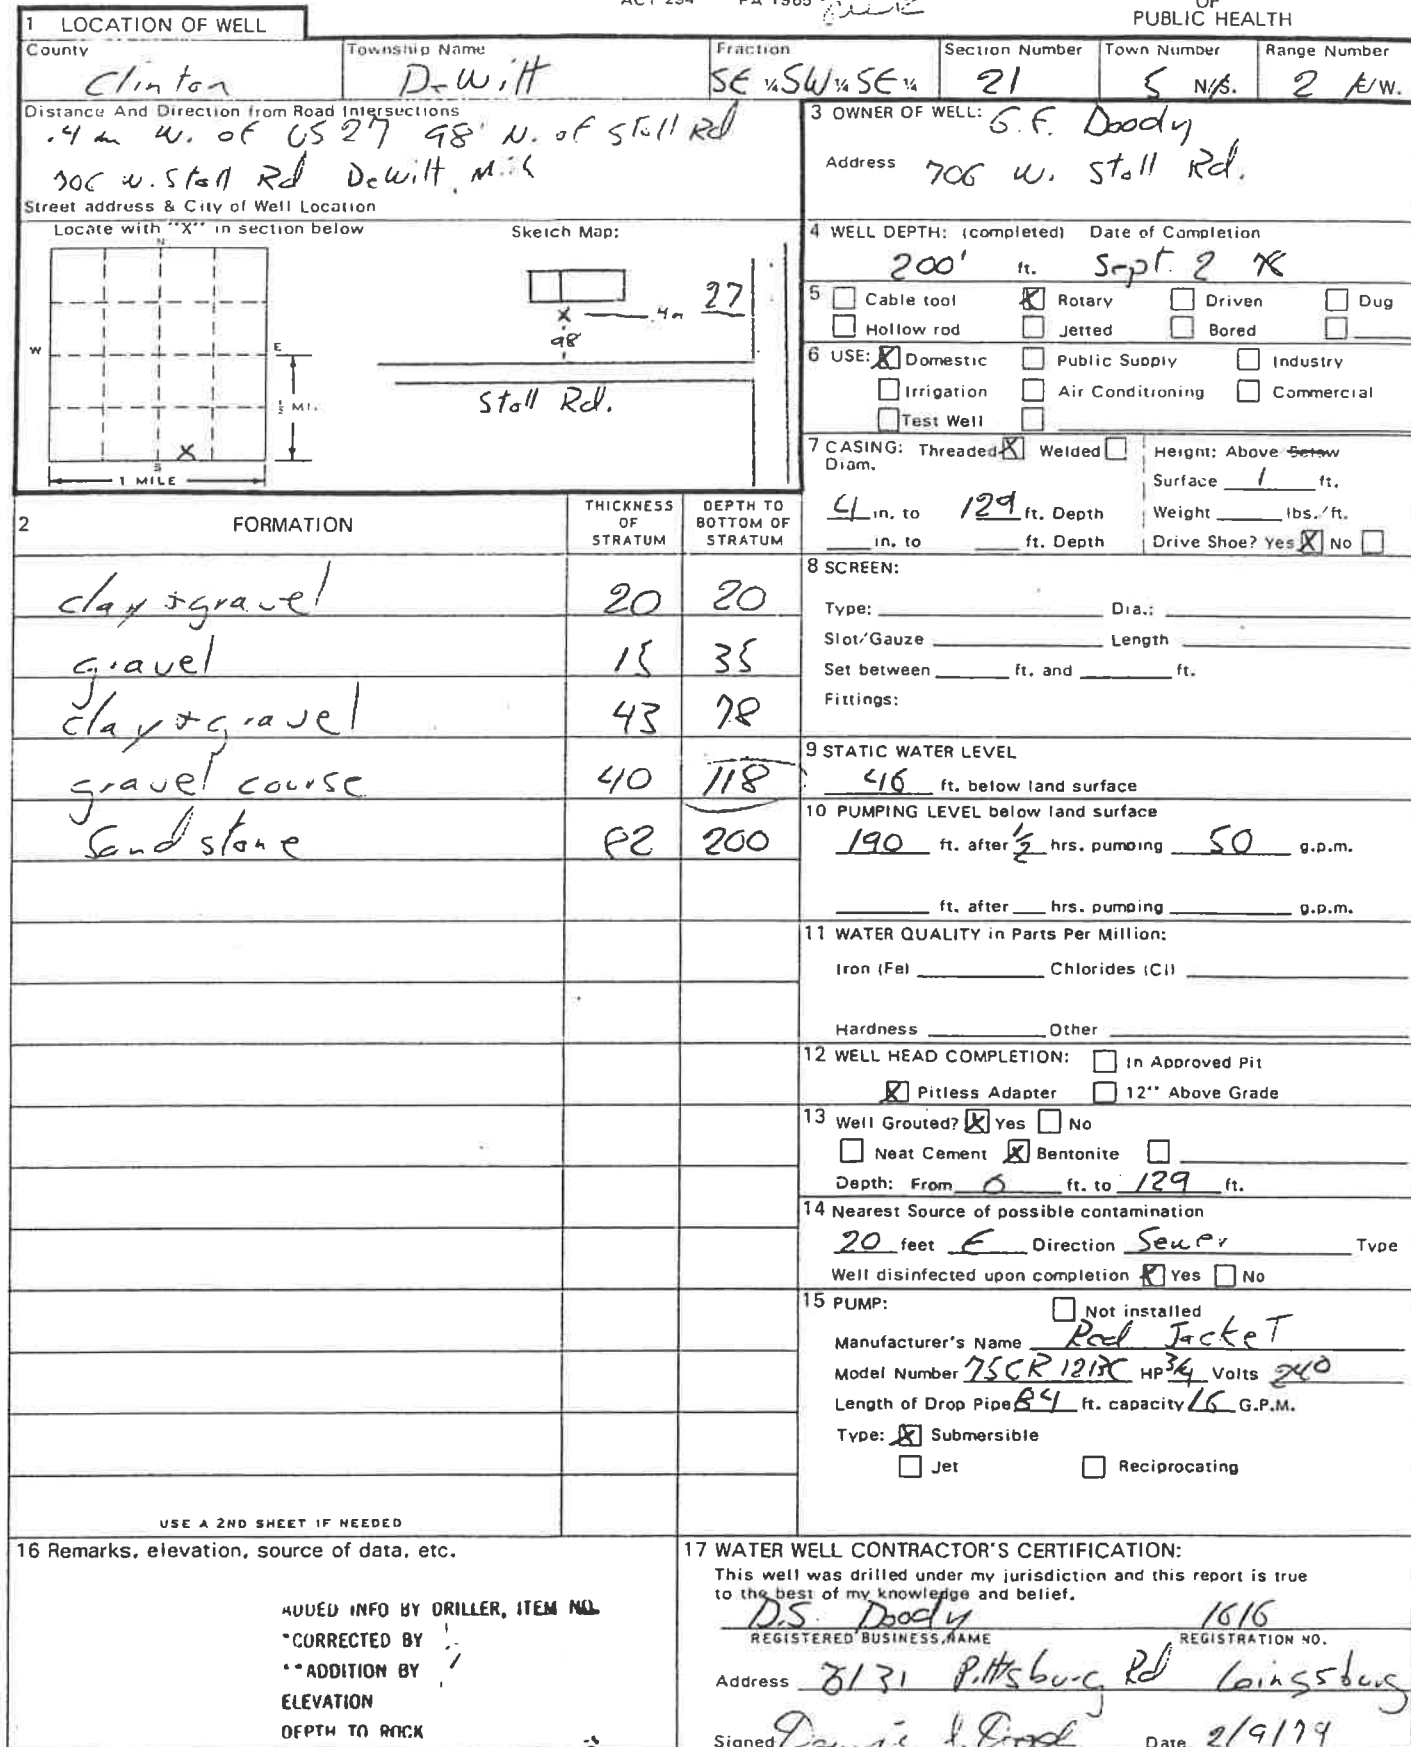 ACT 294 PA 1965
OF
PUBLIC HEALTH
1 LOCATION OF WELL
County
Clinton
Township Name
DeWitt
Fraction
SE ¼ SW ¼ SE ¼
Section Number
21
Town Number
5 N/S.
Range Number
2 E/W.
Distance And Direction from Road Intersections
.4 m W. of US 27 98' N. of Stoll Rd
706 W. Stoll Rd DeWitt, Mich
Street address & City of Well Location
Locate with "X" in section below
Sketch Map:
N
W
E
S
X
½ MI.
1 MILE
X .4m 27
98
Stoll Rd.
3 OWNER OF WELL: G.F. Doody
Address 706 W. Stoll Rd.
4 WELL DEPTH: (completed) Date of Completion
200' ft. Sept. 2 78
5 Cable tool Rotary Driven Dug
Hollow rod Jetted Bored
6 USE: Domestic Public Supply Industry
Irrigation Air Conditioning Commercial
Test Well
7 CASING: Threaded Welded
Diam.
4 in. to 129 ft. Depth
in. to ft. Depth
Height: Above Below
Surface 1 ft.
Weight lbs./ft.
Drive Shoe? Yes No
2 FORMATION
THICKNESS OF STRATUM
DEPTH TO BOTTOM OF STRATUM
clay + gravel 20 20
gravel 15 35
clay + gravel 43 78
gravel course 40 118
Sandstone 82 200
8 SCREEN:
Type: Dia.:
Slot/Gauze Length
Set between ft. and ft.
Fittings:
9 STATIC WATER LEVEL
46 ft. below land surface
10 PUMPING LEVEL below land surface
190 ft. after ½ hrs. pumping 50 g.p.m.
ft. after hrs. pumping g.p.m.
11 WATER QUALITY in Parts Per Million:
Iron (Fe) Chlorides (Cl)
Hardness Other
12 WELL HEAD COMPLETION: In Approved Pit
Pitless Adapter 12" Above Grade
13 Well Grouted? Yes No
Neat Cement Bentonite
Depth: From 0 ft. to 129 ft.
14 Nearest Source of possible contamination
20 feet E Direction Sewer Type
Well disinfected upon completion Yes No
15 PUMP: Not installed
Manufacturer's Name Red Jacket
Model Number 75CR 12BC HP 3/4 Volts 240
Length of Drop Pipe 84 ft. capacity 16 G.P.M.
Type: Submersible
Jet Reciprocating
USE A 2ND SHEET IF NEEDED
16 Remarks, elevation, source of data, etc.
ADDED INFO BY DRILLER, ITEM NO.
*CORRECTED BY
**ADDITION BY
ELEVATION
DEPTH TO ROCK
17 WATER WELL CONTRACTOR'S CERTIFICATION:
This well was drilled under my jurisdiction and this report is true
to the best of my knowledge and belief.
D.S. Doody 1616
REGISTERED BUSINESS NAME REGISTRATION NO.
Address 8131 Pittsburg Rd Laingsburg
Signed Date 2/9/79